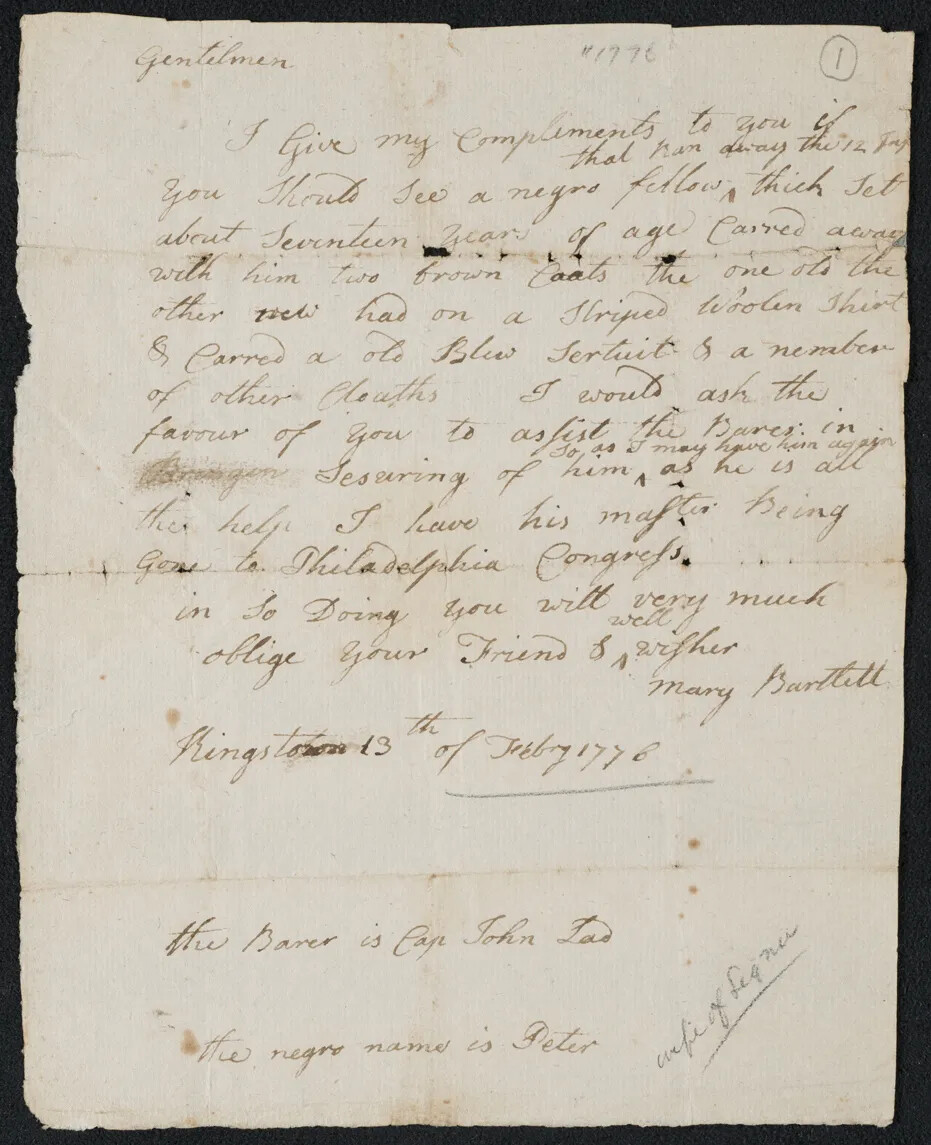 Gentelmen
"1776
1
I Give my Compliments to you if
that Ran away the 12
You Should See a negro fellow ^ thick Set
about Seventeen years of age Carred away
with him two brown Coats the one old the
other new had on a Striped Woolen Shirt
& Carred a old Blew Sertuit & a nember
of other Cloaths I would ask the
favour of You to assist the Barer in
so as I may have him again
Sesuring of him ^ as he is all
the help I have his master Being
Gone to Philadelphia Congress.
in So Doing you will very much
well
oblige Your Friend & ^ wisher
mary Bartlett
Kingstown 13th of Febry 1776
the Barer is Cap John Lad
wife of Signer
the negro name is Peter